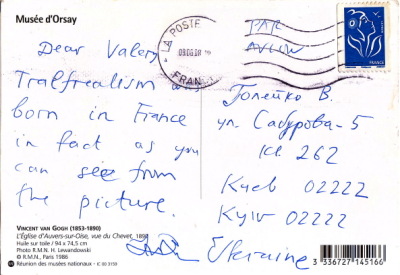 Musée d'Orsay
LA POSTE
FRANCE
PAR
AVION
FRANCE
Dear Valery
Tralfrealism was
born in France
in fact as you
can see from
the picture.
Голейко В.
ул. Сабурова-5
кв 262
Киев 02222
Kyiv 02222
Ukraine
VINCENT VAN GOGH (1853-1890)
L'Église d'Auvers-sur-Oise, vue du Chevet, 1890
Huile sur toile / 94 x 74,5 cm
Photo R.M.N. H. Lewandowski
© R.M.N., Paris 1986
Réunion des musées nationaux - IC 00 3159
3 336727 145166